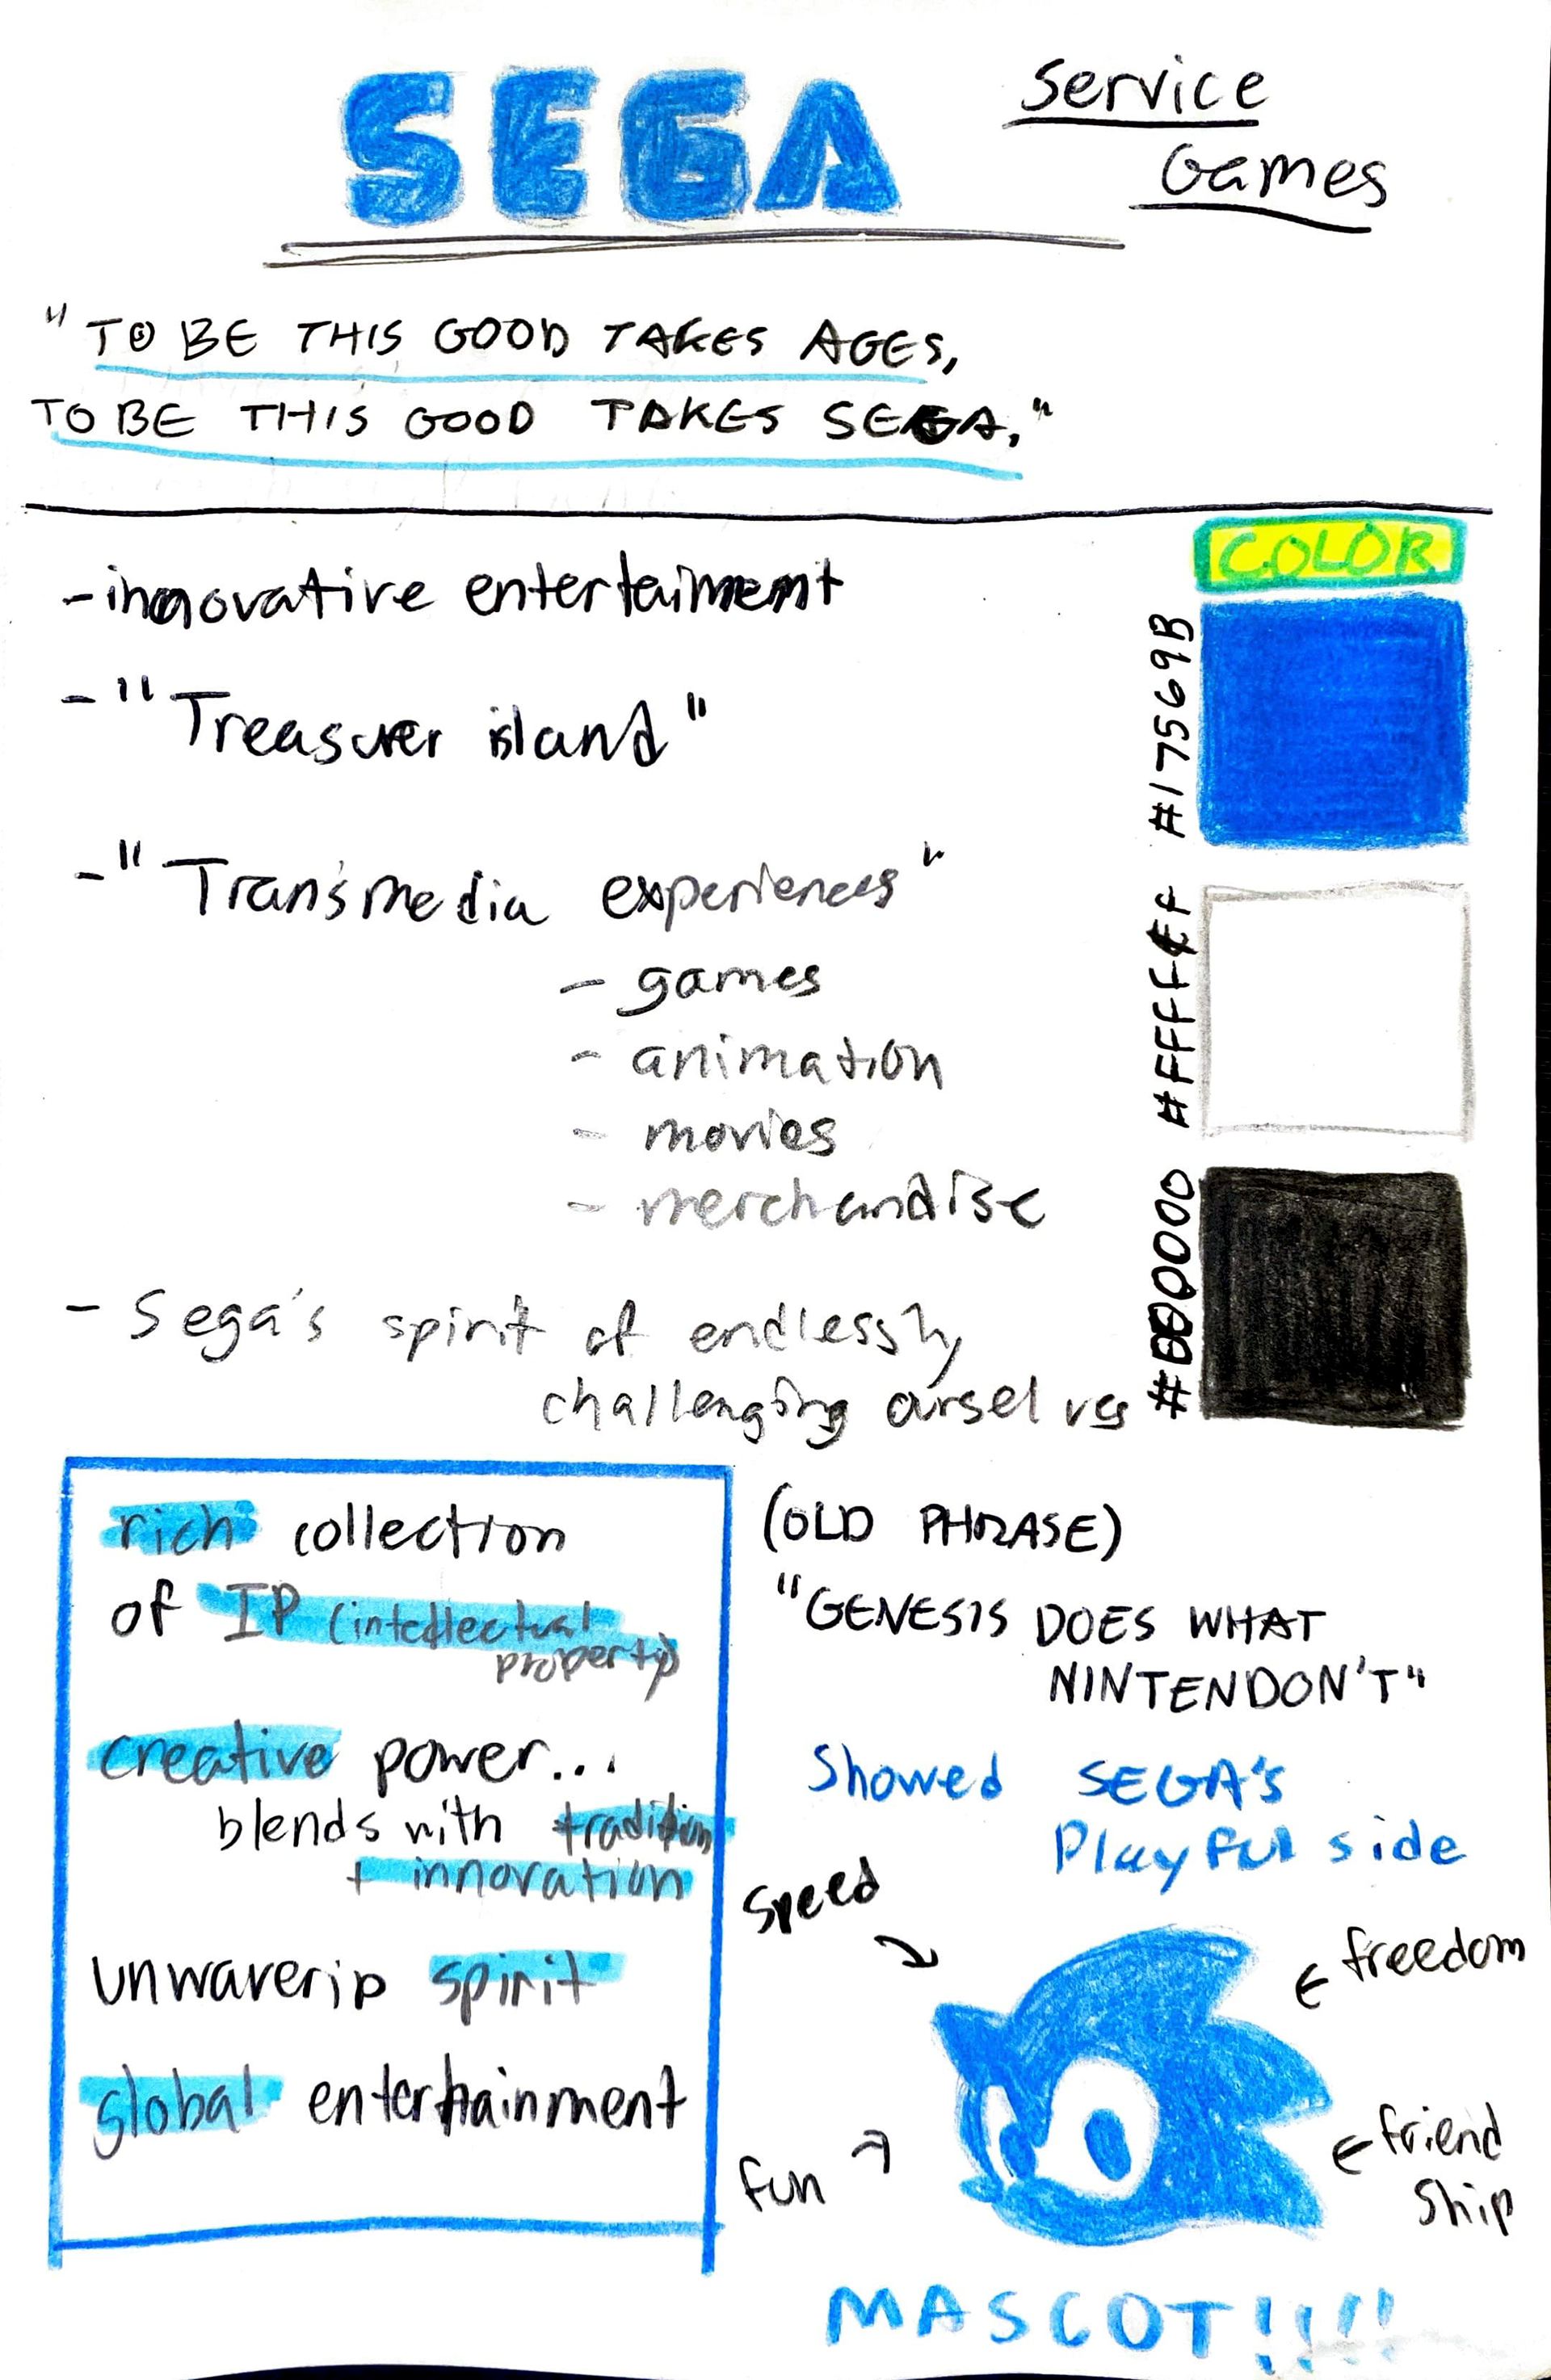 SEGA
Service
Games
"TO BE THIS GOOD TAKES AGES,
TO BE THIS GOOD TAKES SEGA."
-innovative entertainment
- "Treasurer island"
- "Transmedia experiences"
- games
- animation
- movies
- merchandise
- Sega's spirit of endlessly
challenging ourselves
COLOR
#17569B
#FFFFFF
#000000
rich collection
of IP (intellectual
property)
creative power...
blends with tradition
+ innovation
unwaverip spirit
global entertainment
(OLD PHRASE)
"GENESIS DOES WHAT
NINTENDON'T"
Showed SEGA's
Playful side
Speed
freedom
fun
friend
ship
MASCOT!!!!